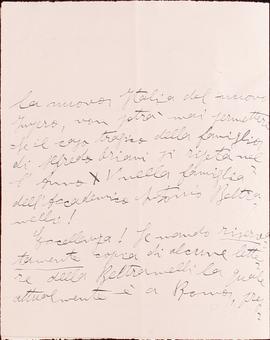 La nuova Italia del nuovo
Impero, non potrà mai permettere
che il caso tragico della famiglia
di Alfredo Oriani si ripeta nel
l'Anno X nella famiglia
dell'Accademico Antonio Beltra
melli!
Eccellenza! Le mando riserva
tamente copia di alcune lette
re della Beltramelli la quale
attualmente è a Roma, pre